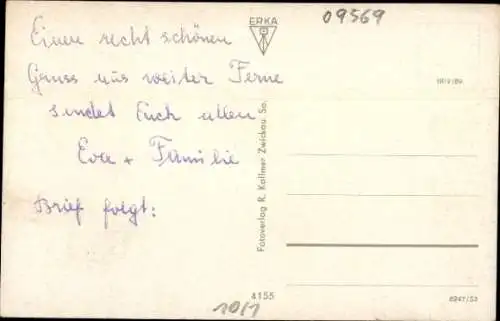 Einen recht schönen
Gruss aus weiter Ferne
sendet Euch allen
Eva + Familie
Brief folgt:
ERKA
09569
Fotoverlag R. Kallmer Zwickau Sa.
4155
10/1
6947/53